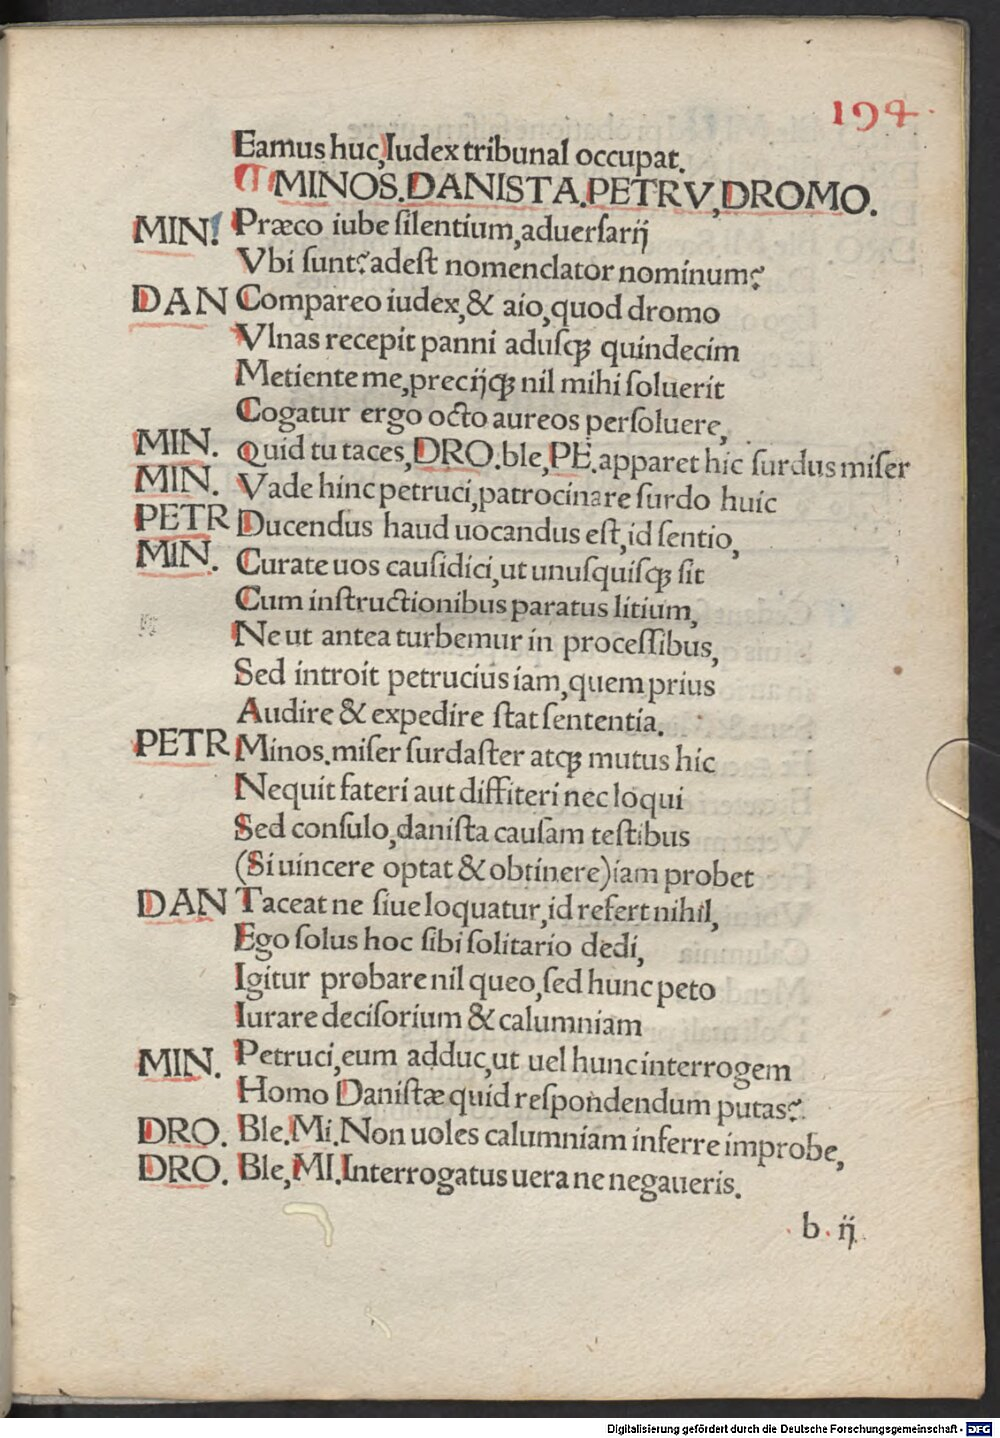 194
Eamus huc, Iudex tribunal occupat.
¶ MINOS. DANISTA. PETRV, DROMO.
MIN. Præco iube ſilentium, aduerſarij
Vbi ſunt? adeſt nomenclator nominum?
DAN Compareo iudex, & aio, quod dromo
Vlnas recepit panni aduſqꝫ quindecim
Metiente me, precijqꝫ nil mihi ſoluerit
Cogatur ergo octo aureos perſoluere,
MIN. Quid tu taces, DRO. ble, PE. apparet hic ſurdus miſer
MIN. Vade hinc petruci, patrocinare ſurdo huic
PETR Ducendus haud uocandus eſt, id ſentio,
MIN. Curate uos cauſidici, ut unuſquiſqꝫ ſit
Cum inſtructionibus paratus litium,
Ne ut antea turbemur in proceſſibus,
Sed introit petrucius iam, quem prius
Audire & expedire ſtat ſententia.
PETR Minos. miſer ſurdaſter atqꝫ mutus hic
Nequit fateri aut diffiteri nec loqui
Sed conſulo, daniſta cauſam teſtibus
(Si uincere optat & obtinere) iam probet
DAN Taceat ne ſiue loquatur, id refert nihil,
Ego ſolus hoc ſibi ſolitario dedi,
Igitur probare nil queo, ſed hunc peto
Iurare deciſorium & calumniam
MIN. Petruci, eum adduc, ut uel hunc interrogem
Homo Daniſtæ quid reſpondendum putas?
DRO. Ble. Mi. Non uoles calumniam inferre improbe,
DRO. Ble, MI. Interrogatus uera ne negaueris.
b. ij
Digitalisierung gefördert durch die Deutsche Forschungsgemeinschaft - DFG